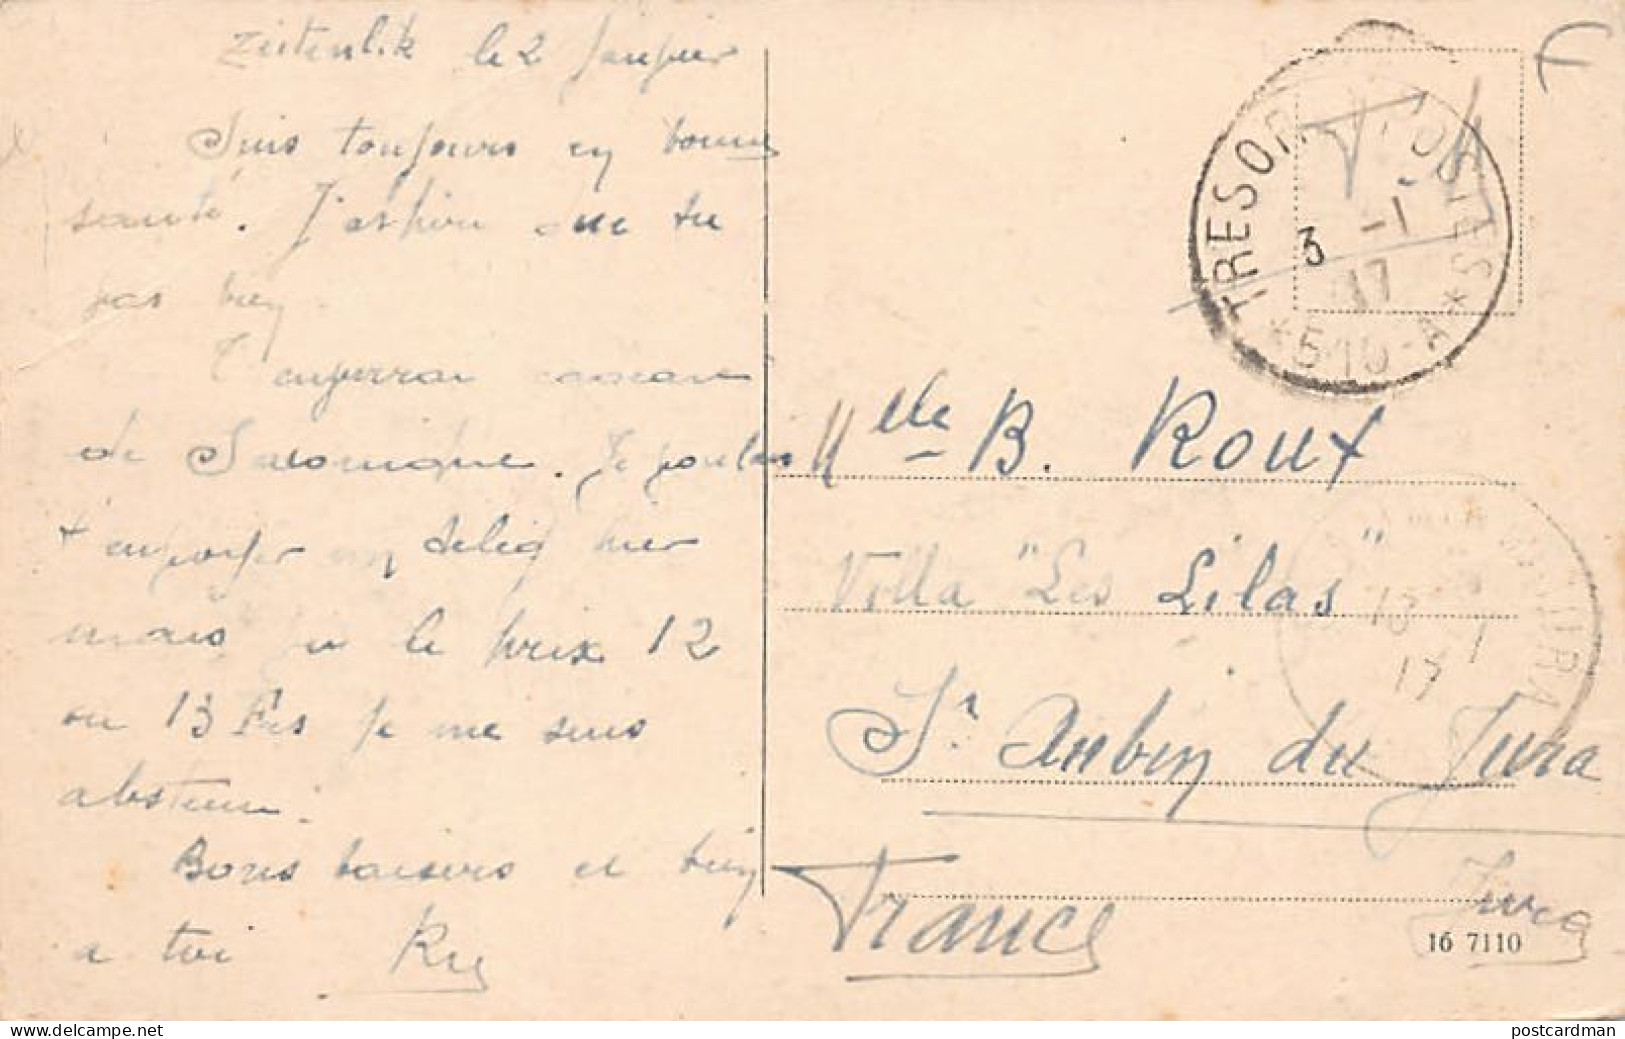 Zeitenlik le 2 Janvier
Suis toujours en bonne
santé. J'espère que tu
vas bien
T'enverrai
de Salonique. Je voulais
t'envoyer un hier
mais vu le prix 12
ou 13 Frs je me suis
abstenu.
Bons baisers et bien
a toi
F.M.
TRESOR POSTES
3 -1
17
* 510 - A *
Mlle B. Roux
Villa "Les Lilas"
St Aubin du Jura
France
Jura
JURA
-1
17
16 7110
www.delcampe.net
postcardman